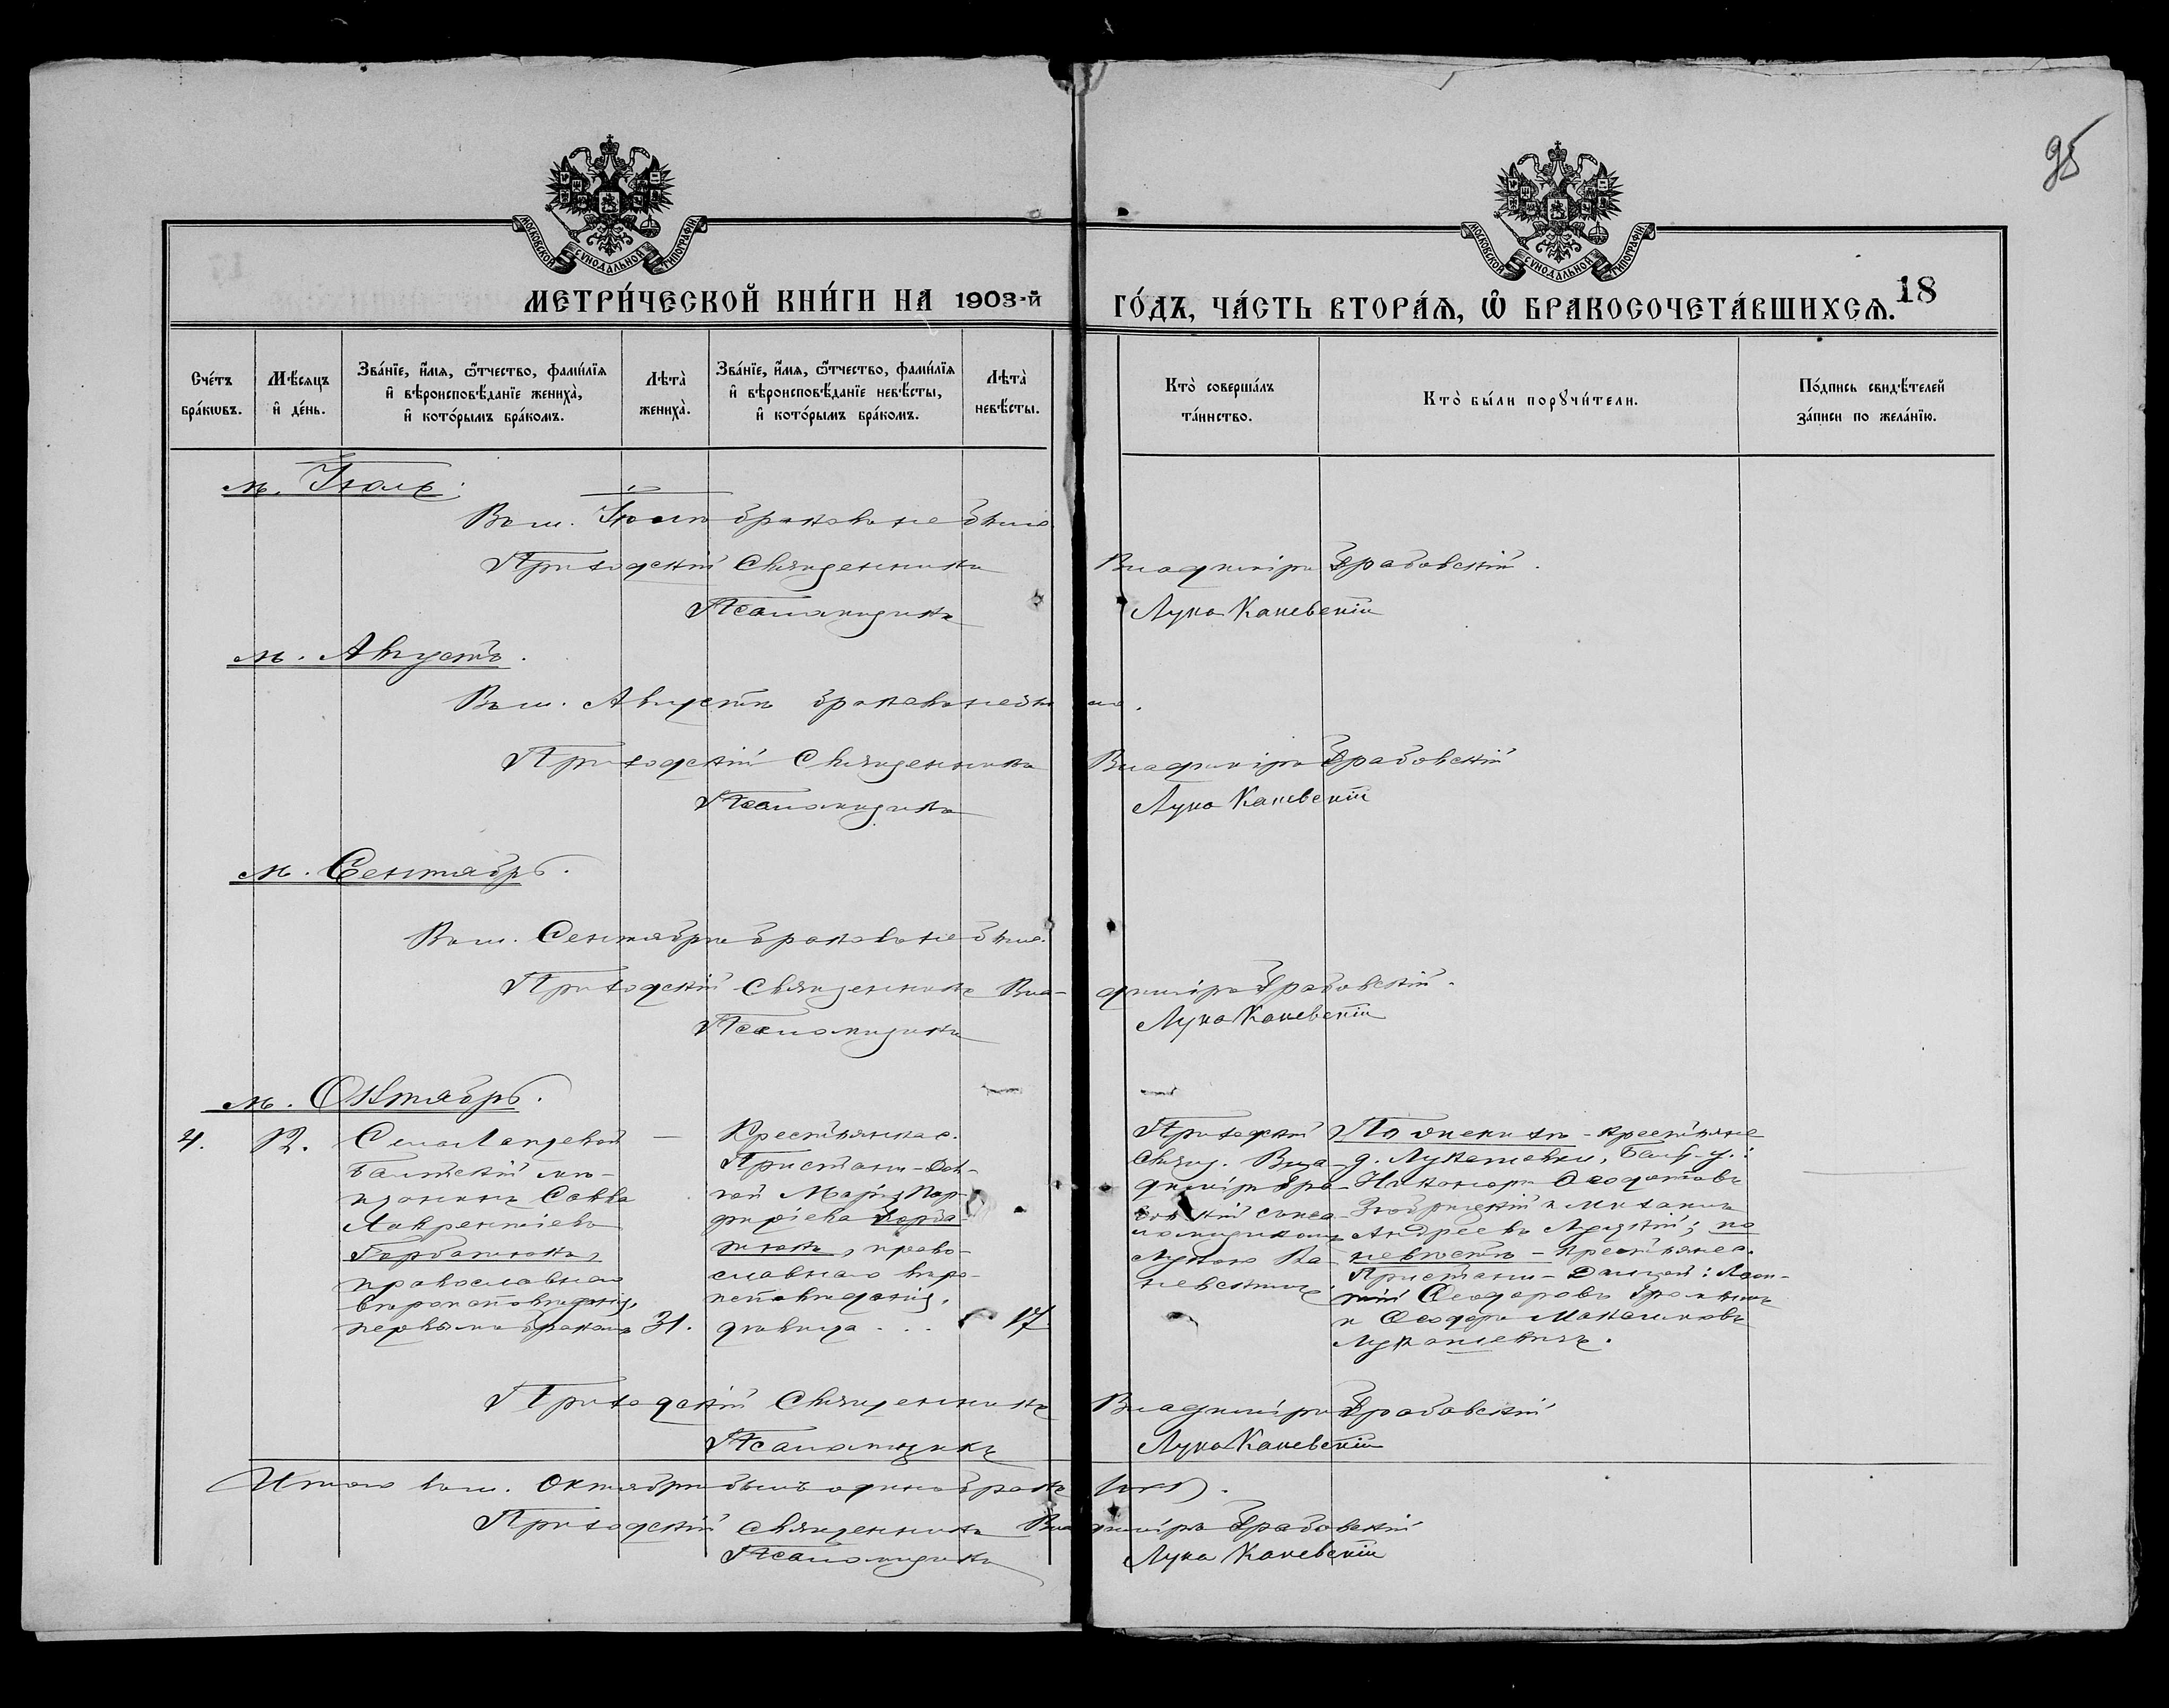 95
МОСКОВСКОЙ СѴНОДАЛЬНОЙ ТИПОГРАФІИ
МОСКОВСКОЙ СѴНОДАЛЬНОЙ ТИПОГРАФІИ
МЕТРИ́ЧЕСКОЙ КНИ́ГИ НА 1903-й ГО́ДЪ, ЧА́СТЬ ВТОРА́Ѧ, Ѽ БРАКОСОЧЕТА́ВШИХСѦ. 18
Сче́тъ бра́кѡвъ.
Мѣ́сяцъ и҆ де́нь.
Зва́нїе, и҆́мѧ, ѻ҆́тчество, фами́лїѧ и҆ вѣроисповѣ́данїе жениха̀, и҆ кото́рымъ бра́комъ.
Лѣта̀ жениха̀.
Зва́нїе, и҆́мѧ, ѻ҆́тчество, фами́лїѧ и҆ вѣроисповѣ́данїе невѣ́сты, и҆ кото́рымъ бра́комъ.
Лѣта̀ невѣ́сты.
Кто̀ соверша́лъ та́инство.
Кто̀ бы́ли порꙋчи́тели.
По́дпись свидѣ́телей за́писи по жела́нїю.
м. Іюль.
Въ м. Іюлѣ браковъ не было
Приходскій Священникъ Владиміръ Грабовскій.
Псаломщикъ Лука Каневскій
м. Августъ.
Въ м. Августѣ браковъ не было.
Приходскій Священникъ Владиміръ Грабовскій
Псаломщикъ Лука Каневскій
м. Сентябрь.
Въ м. Сентябрѣ браковъ не было.
Приходскій Священникъ Владиміръ Грабовскій.
Псаломщикъ Лука Каневскій
м. Октябрь.
4.
12.
Села
Балтскій мѣ-
щанинъ Савва
Лаврентіевъ
Горбатюкъ,
православнаго
вѣроисповѣданія,
первымъ бракомъ
31.
Крестьянка с.
Пристани-
Марія Пор-
фиріева Горба-
тюкъ, право-
славнаго вѣро-
исповѣданія,
дѣвица . . .
17
Приходскій
Свящ. Влади-
диміръ Гра-
бовскій съ пса-
ломщикомъ
Лукою Ка-
невскимъ.
По женихѣ - крестьяне
д. Лукашевки, Балт. у.:
Никаноръ Ѳеодотовъ
и Михаилъ
Андреевъ ; по
невѣстѣ - крестьяне с.
Пристани-
Ѳеодоровъ
и Ѳеодоръ
Лукашевичъ.
Приходскій Священникъ Владиміръ Грабовскій
Псаломщикъ Лука Каневскій
Итого въ м. Октябрѣ былъ одинъ бракъ (одинъ).
Приходскій Священникъ Владиміръ Грабовскій
Псаломщикъ Лука Каневскій